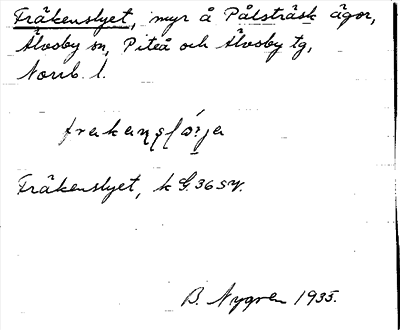 Fräkenslyet, myr å Pålsträsk ägor,
Älvsby sn, Piteå och Älvsby tg,
Norrb. l.
Fräkenslyet, k G. 36 SV.
B. Nygren 1935.